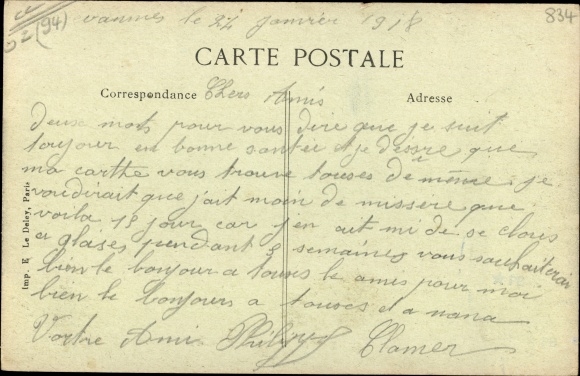 (94)
834
vannes le 24 janvier 1918
CARTE POSTALE
Correspondance
Adresse
Chers Amis
deux mots pour vous dire que je suit
toujour en bonne santée je desire que
ma carthe vous trouve touses de même je
voudirait que j'ait moin de missere que
voila 15 jour car j'en ait mi de se clous
et glases pendant 3 semaines vous souhaiterai
bien le bonjour a touses le amis pour moi
bien le bonjours a touses et a nana
Vortre Ami Clamer
Imp. E. Le Deley, Paris